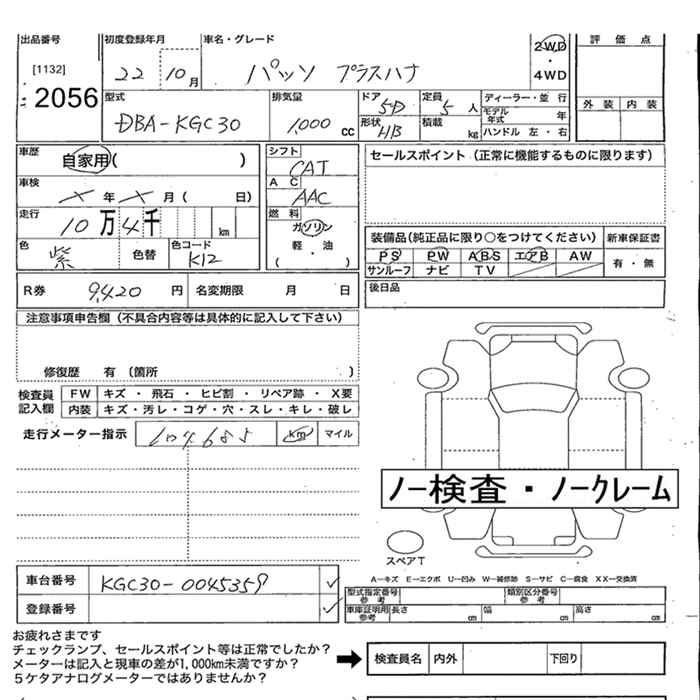 出品番号 初度登録年月 車名・グレード 2WD 評価点
[1132] 22 10月 パッソ プラスハナ 4WD
2056 型式 排気量 ドア 5D 定員 5人 ディーラー・並行 外装 内装
DBA-KGC30 1,000 cc 形状 HB 積載 kg モデル年式 年
ハンドル 左・右
車歴 自家用( ) シフト CAT セールスポイント (正常に機能するものに限ります)
車検 メ年メ月( 日) A C AAC
走行 10万4千 km 燃料 ガソリン 装備品(純正品に限り○をつけてください) 新車保証書
色 紫 色替 色コード K12 軽・油 PS PW ABS エアB AW 有・無
( ) サンルーフ ナビ TV
R券 9,420円 名変期限 月 日 後日品
注意事項申告欄 (不具合内容等は具体的に記入して下さい)
修復歴 有 (箇所 )
検査員 FW キズ・飛石・ヒビ割・リペア跡・X要
記入欄 内装 キズ・汚レ・コゲ・穴・スレ・キレ・破レ
走行メーター指示 104685 km マイル
ノー検査・ノークレーム
スペアT
A―キズ E―エクボ U―凹み W―補修跡 S―サビ C―腐食 XX―交換済
車台番号 KGC30-0045359 型式指定番号 参考 類別区分番号 参考
登録番号 車庫証明用 参考 長さ cm 幅 cm 高さ cm
お疲れさまです
チェックランプ、セールスポイント等は正常でしたか?
メーターは記入と現車の差が1,000km未満ですか? 検査員名 内外 下回り
5ケタアナログメーターではありませんか?